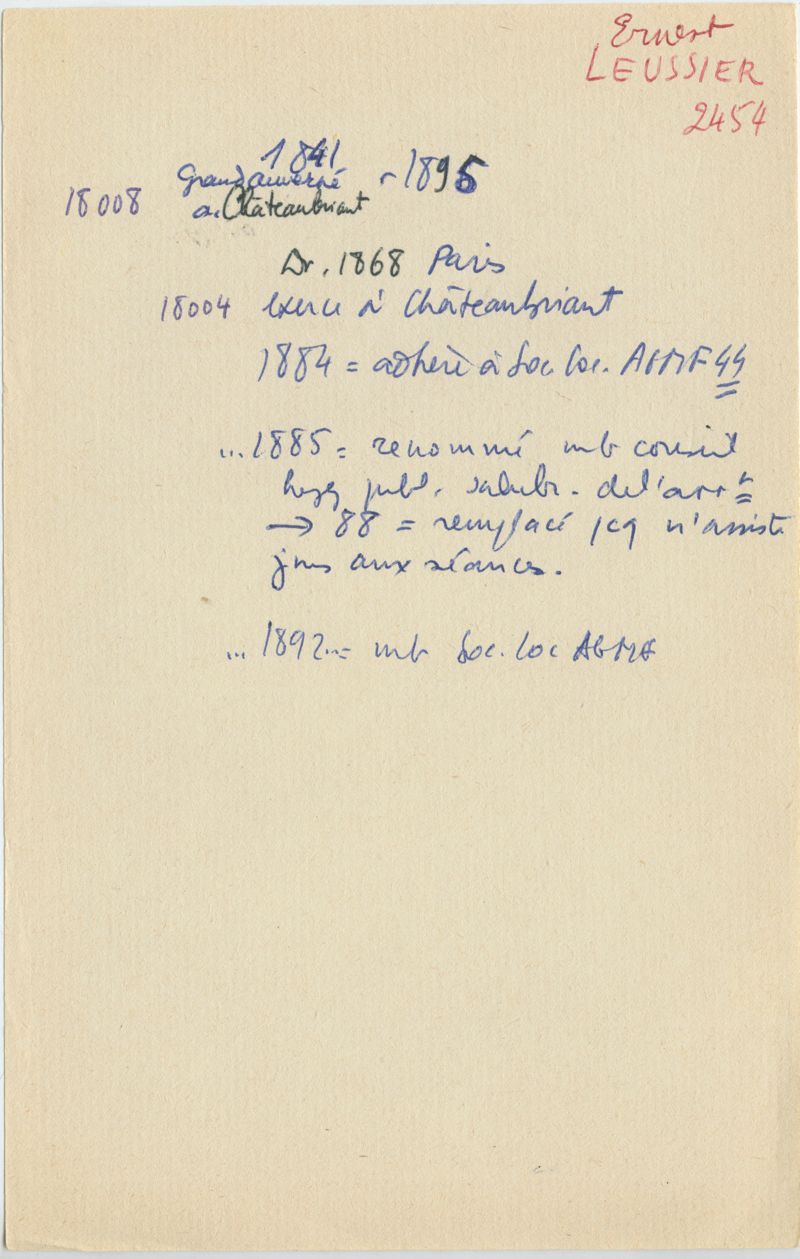 Ernest
LEUSSIER
2454
1841
Grandauverné - 1895
18008 a. Châteaubriant
Dr. 1868 Paris
18004 exerce à Châteaubriant
1884 = adhère à Soc. loc. AGMF 44
...1885 = renommé mb conseil
hyg publ. salubr. de l'arrt
→ 88 = remplacé pcq n'assiste
jms aux séances.
... 1892..= mb Soc. loc AGMF